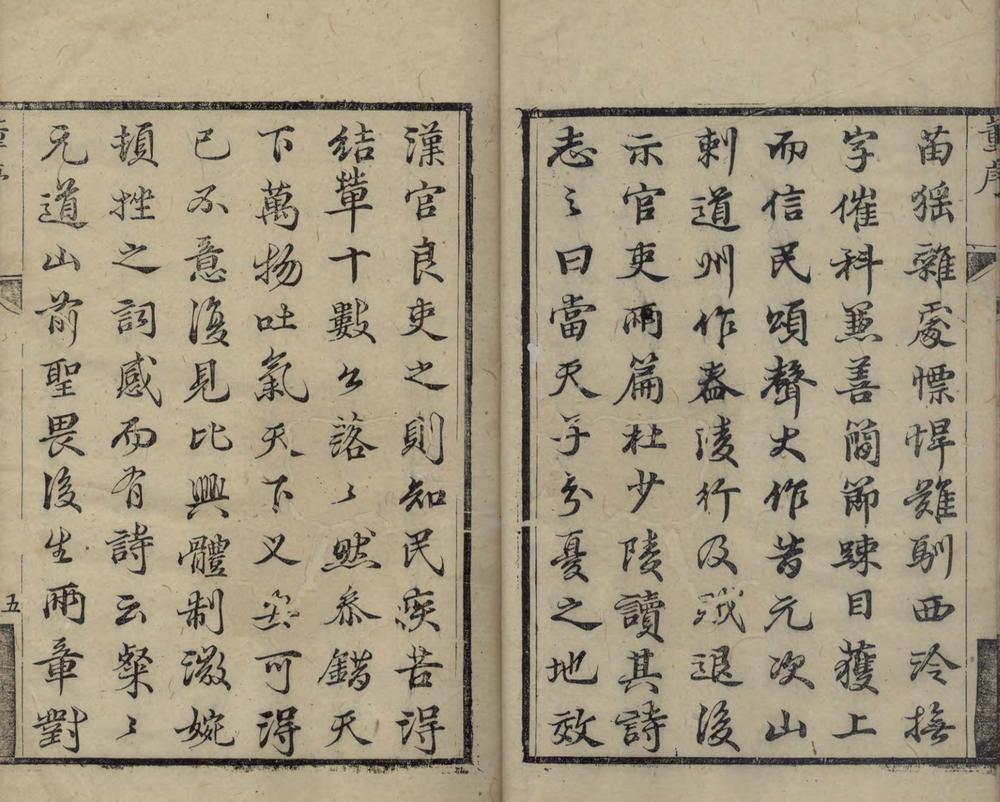 董序
苗猺雜處慓悍難馴西泠撫
字催科兼善簡節踈目獲上
而信民頌聲大作昔元次山
刺道州作舂淩行及賊退後
示官吏兩篇杜少陵讀其詩
志之曰當天子分憂之地效
漢官良吏之則知民疾苦得
結輩十數公落〻然叅錯天
下萬物吐氣天下乂安可得
已不意復見比興體制微婉
頓挫之詞感而有詩云粲〻
元道山前聖畏後生兩章對
五